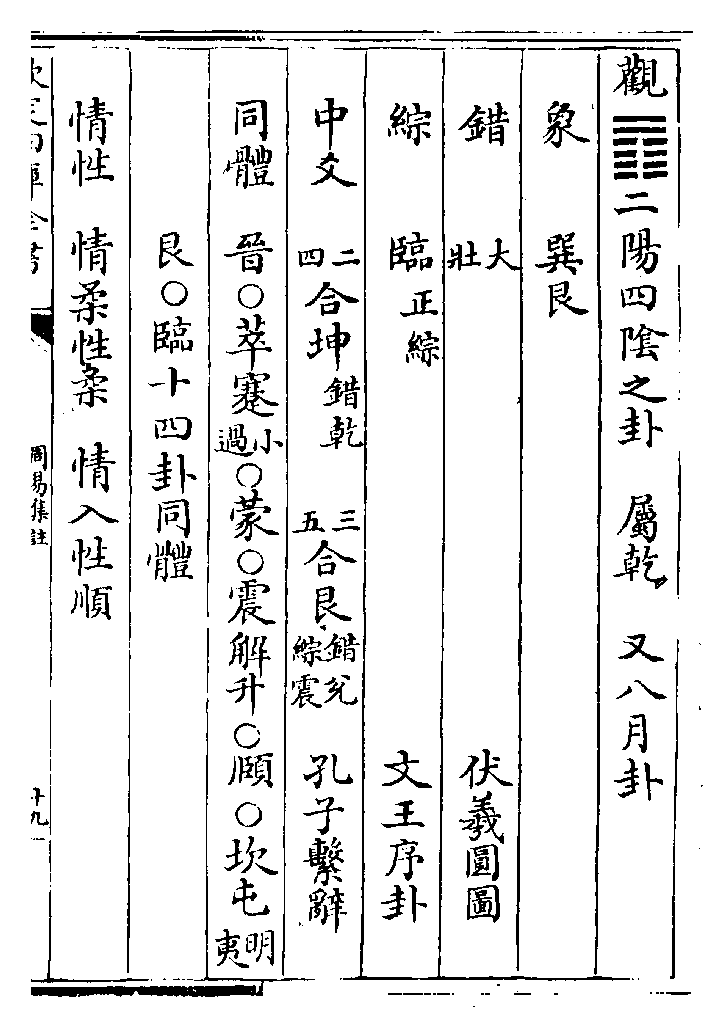 觀䷓二陽四陰之卦　屬乾　又八月卦
象　巽艮
錯　大壯　伏羲圓圖
綜　臨正綜　文王序卦
中爻　二四合坤錯乾　三五合艮錯兌綜震　孔子繫辭
同體　晉○萃蹇小過○蒙○震解升○頤○坎屯明夷
艮○臨十四卦同體
情性　情柔性柔　情入性順
欽定四庫全書
周易集註
十九